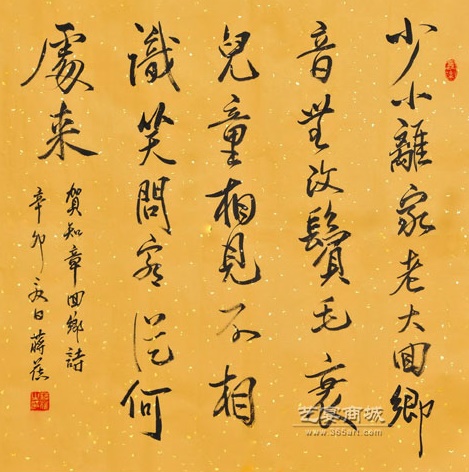 少小離家老大回鄉
音無改鬢毛衰
兒童相見不相
識笑問客從何
處来
賀知章回鄉詩
辛卯夏日蔣
商城
www.365art.com